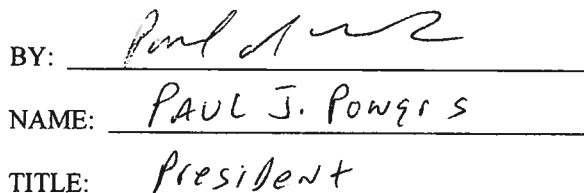 BY:
NAME: PAUL J. Powers
TITLE: President